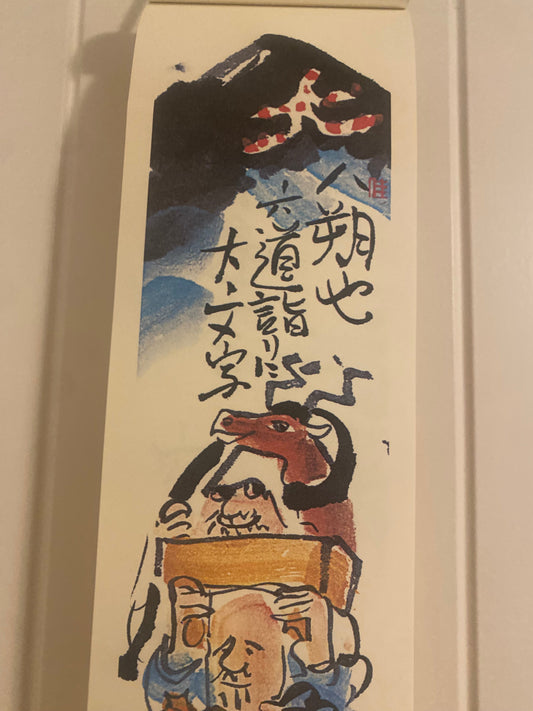 八朔也
六道詣りに
大文字